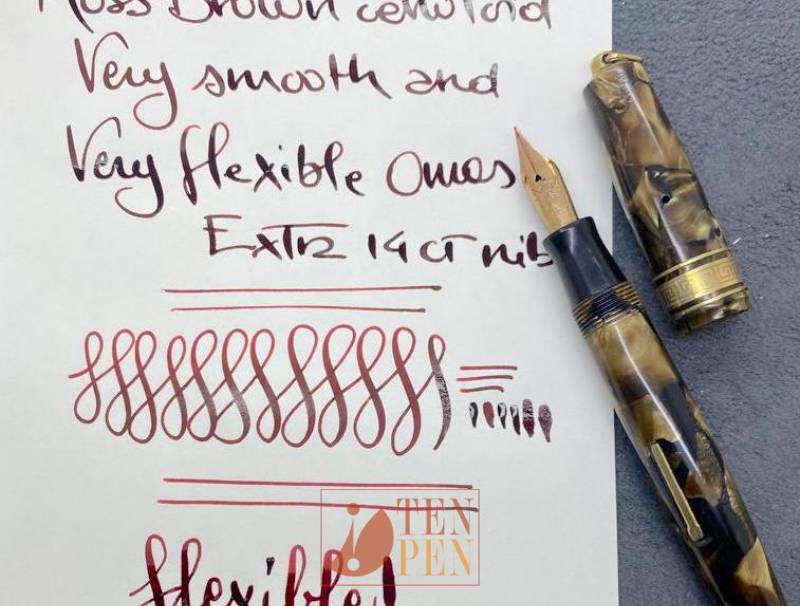 Moss Brown celluloid
Very smooth and
Very flexible Omas
Extra 14 ct nib
TEN
PEN
flexible!